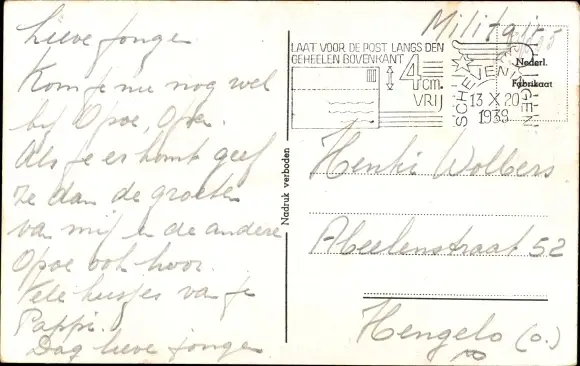 Lieve jongen
Kom je nu nog wel
bij Opoe, Opa.
Als je er komt geef
ze dan de groeten
van mij en de andere
Opoe ook hoor.
Vele kusjes van je
Pappi.
Dag lieve jongen
Militair
LAAT VOOR DE POST LANGS DEN
GEHEELEN BOVENKANT
4 cm.
VRIJ
SCHEVENINGEN
13 X 20
1939
Nederl.
Fabrikaat
Nadruk verboden
Henki Wolbers
Abeelenstraat 52
Hengelo (O.)